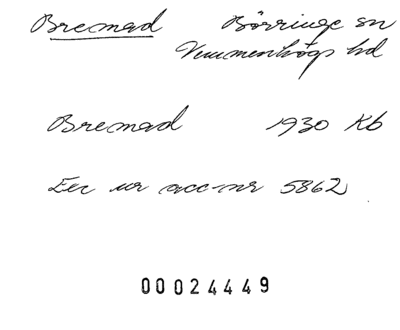 Bremad Börringe sn
Vemmenhögs hd
Bremad 1930 Kb
Exc ur acc-nr 5862
00024449